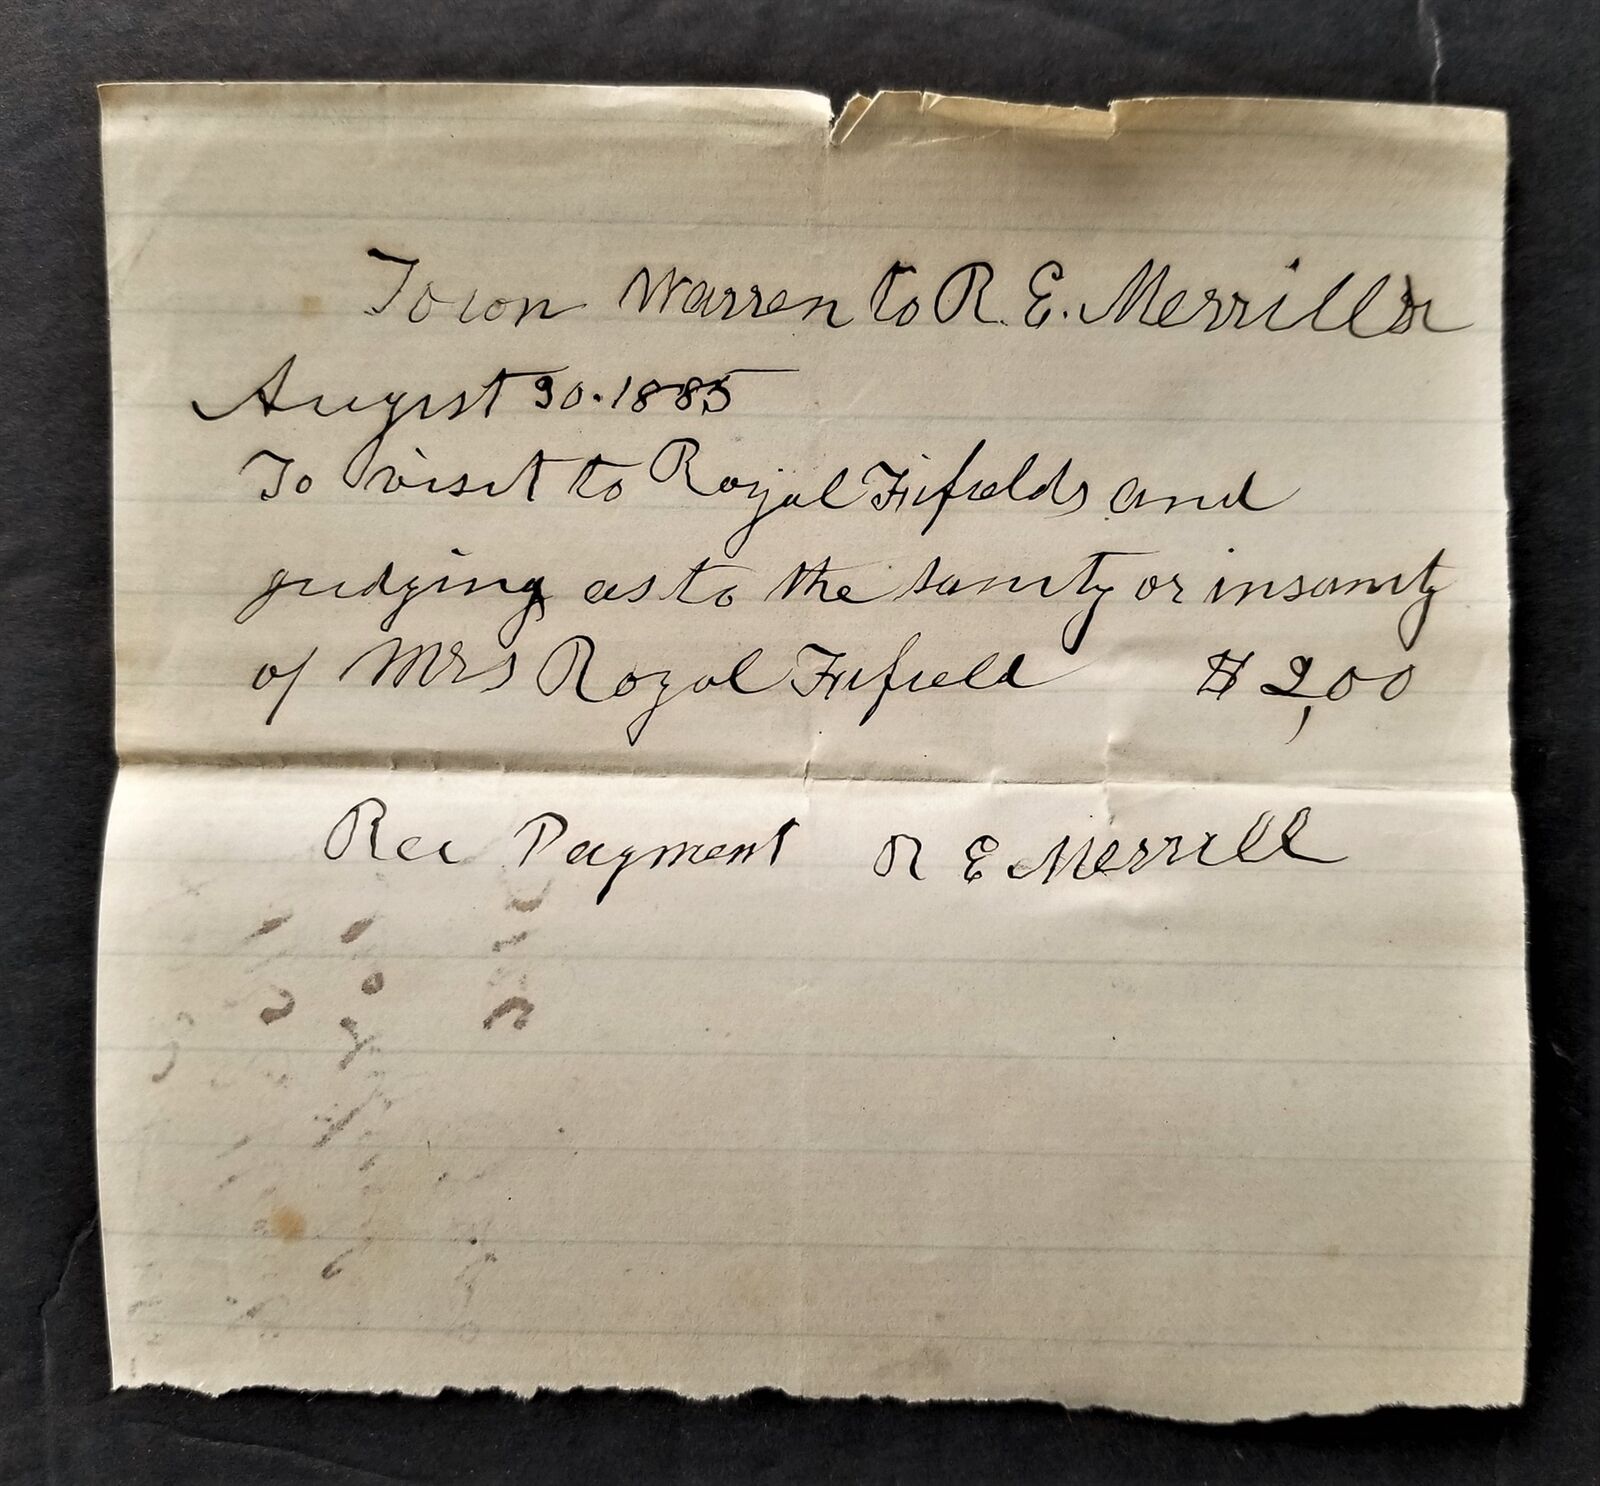 Town Warren to R. E. Merrill Dr
August 30. 1885
To visit to Royal Fifields and
judging as to the sanity or insanity
of Mrs Royal Fifield $ 2,00
Rec Payment R E Merrill